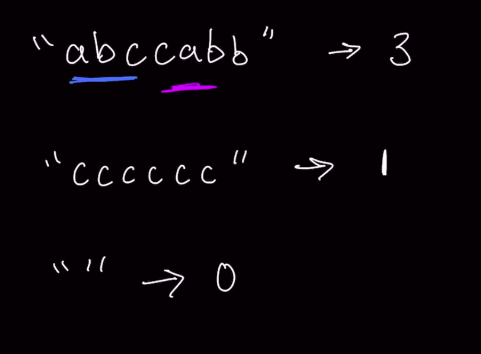 "abccabb" → 3
"cccccc" → 1
"" → 0